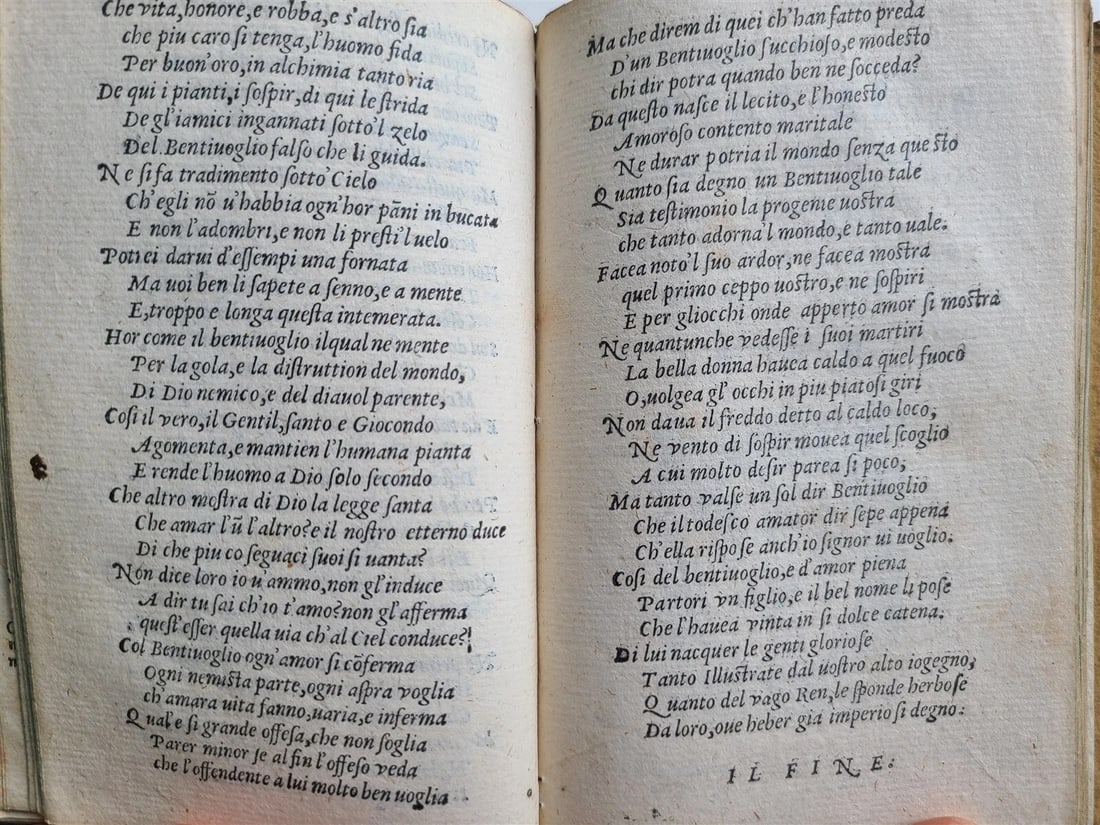 Che vita, honore, e robba, e s'altro sia
che piu caro si tenga, l'huomo fida
Per buon'oro, in alchimia tanto ria
De qui i pianti, i sospir, di qui le strida
De gl'iamici ingannati sotto'l zelo
Del Bentiuoglio falso che li guida.
Ne si fa tradimento sotto'Cielo
Ch'egli nō u'habbia ogn'hor pāni in bucata
E non l'adombri, e non li presti'l uelo
Potrei darui d'essempi una fornata
Ma uoi ben li sapete a senno, e a mente
E, troppo e longa questa intemerata.
Hor come il bentiuoglio ilqual ne mente
Per la gola, e la distruttion del mondo,
Di Dio nemico, e del diauol parente,
Cosi il vero, il Gentil, santo e Giocondo
Agomenta, e mantien l'humana pianta
E rende l'huomo a Dio solo secondo
Che altro mostra di Dio la legge santa
Che amar l'ū l'altro? e il nostro etterno duce
Di che piu co seguaci suoi si uanta?
Non dice loro io u'ammo, non gl'induce
A dir tu sai ch'io t'amo? non gl'afferma
quest'esser quella uia ch'al Ciel conduce?
Col Bentiuoglio ogn'amor si cōferma
Ogni nemista parte, ogni aspra voglia
ch'amara uita fanno, uaria, e inferma
Qual e si grande offesa, che non soglia
Parer minor se al fin l'offeso veda
che l'offendente a lui molto ben uoglia
Ma che direm di quei ch'han fatto preda
D'un Bentiuoglio succhioso, e modesto
chi dir potra quando ben ne socceda?
Da questo nasce il lecito, e l'honesto
Amoroso contento maritale
Ne durar potria il mondo senza questo
Quanto sia degno un Bentiuoglio tale
Sia testimonio la progenie uostra
che tanto adorna'l mondo, e tanto uale.
Facea noto'l suo ardor, ne facea mostra
quel primo ceppo uostro, e ne sospiri
E per gliocchi onde apperto amor si mostra
Ne quantunche vedesse i suoi martiri
La bella donna hauea caldo a quel fuoco
O, uolgea gl'occhi in piu piatosi giri
Non daua il freddo detto al caldo loco,
Ne vento di sospir mouea quel scoglio
A cui molto desir parea si poco;
Ma tanto valse un sol dir Bentiuoglio
Che il todesco amator dir sepe appena
Ch'ella rispose anch'io signor ui uoglio.
Cosi del bentiuoglio, e d'amor piena
Partori vn figlio, e il bel nome li pose
Che l'hauea vinta in si dolce catena.
Di lui nacquer le genti gloriose
Tanto Illustrate dal uostro alto iogegno,
Quanto del vago Ren, le sponde herbose
Da loro, oue heber gia imperio si degno.
IL FINE.